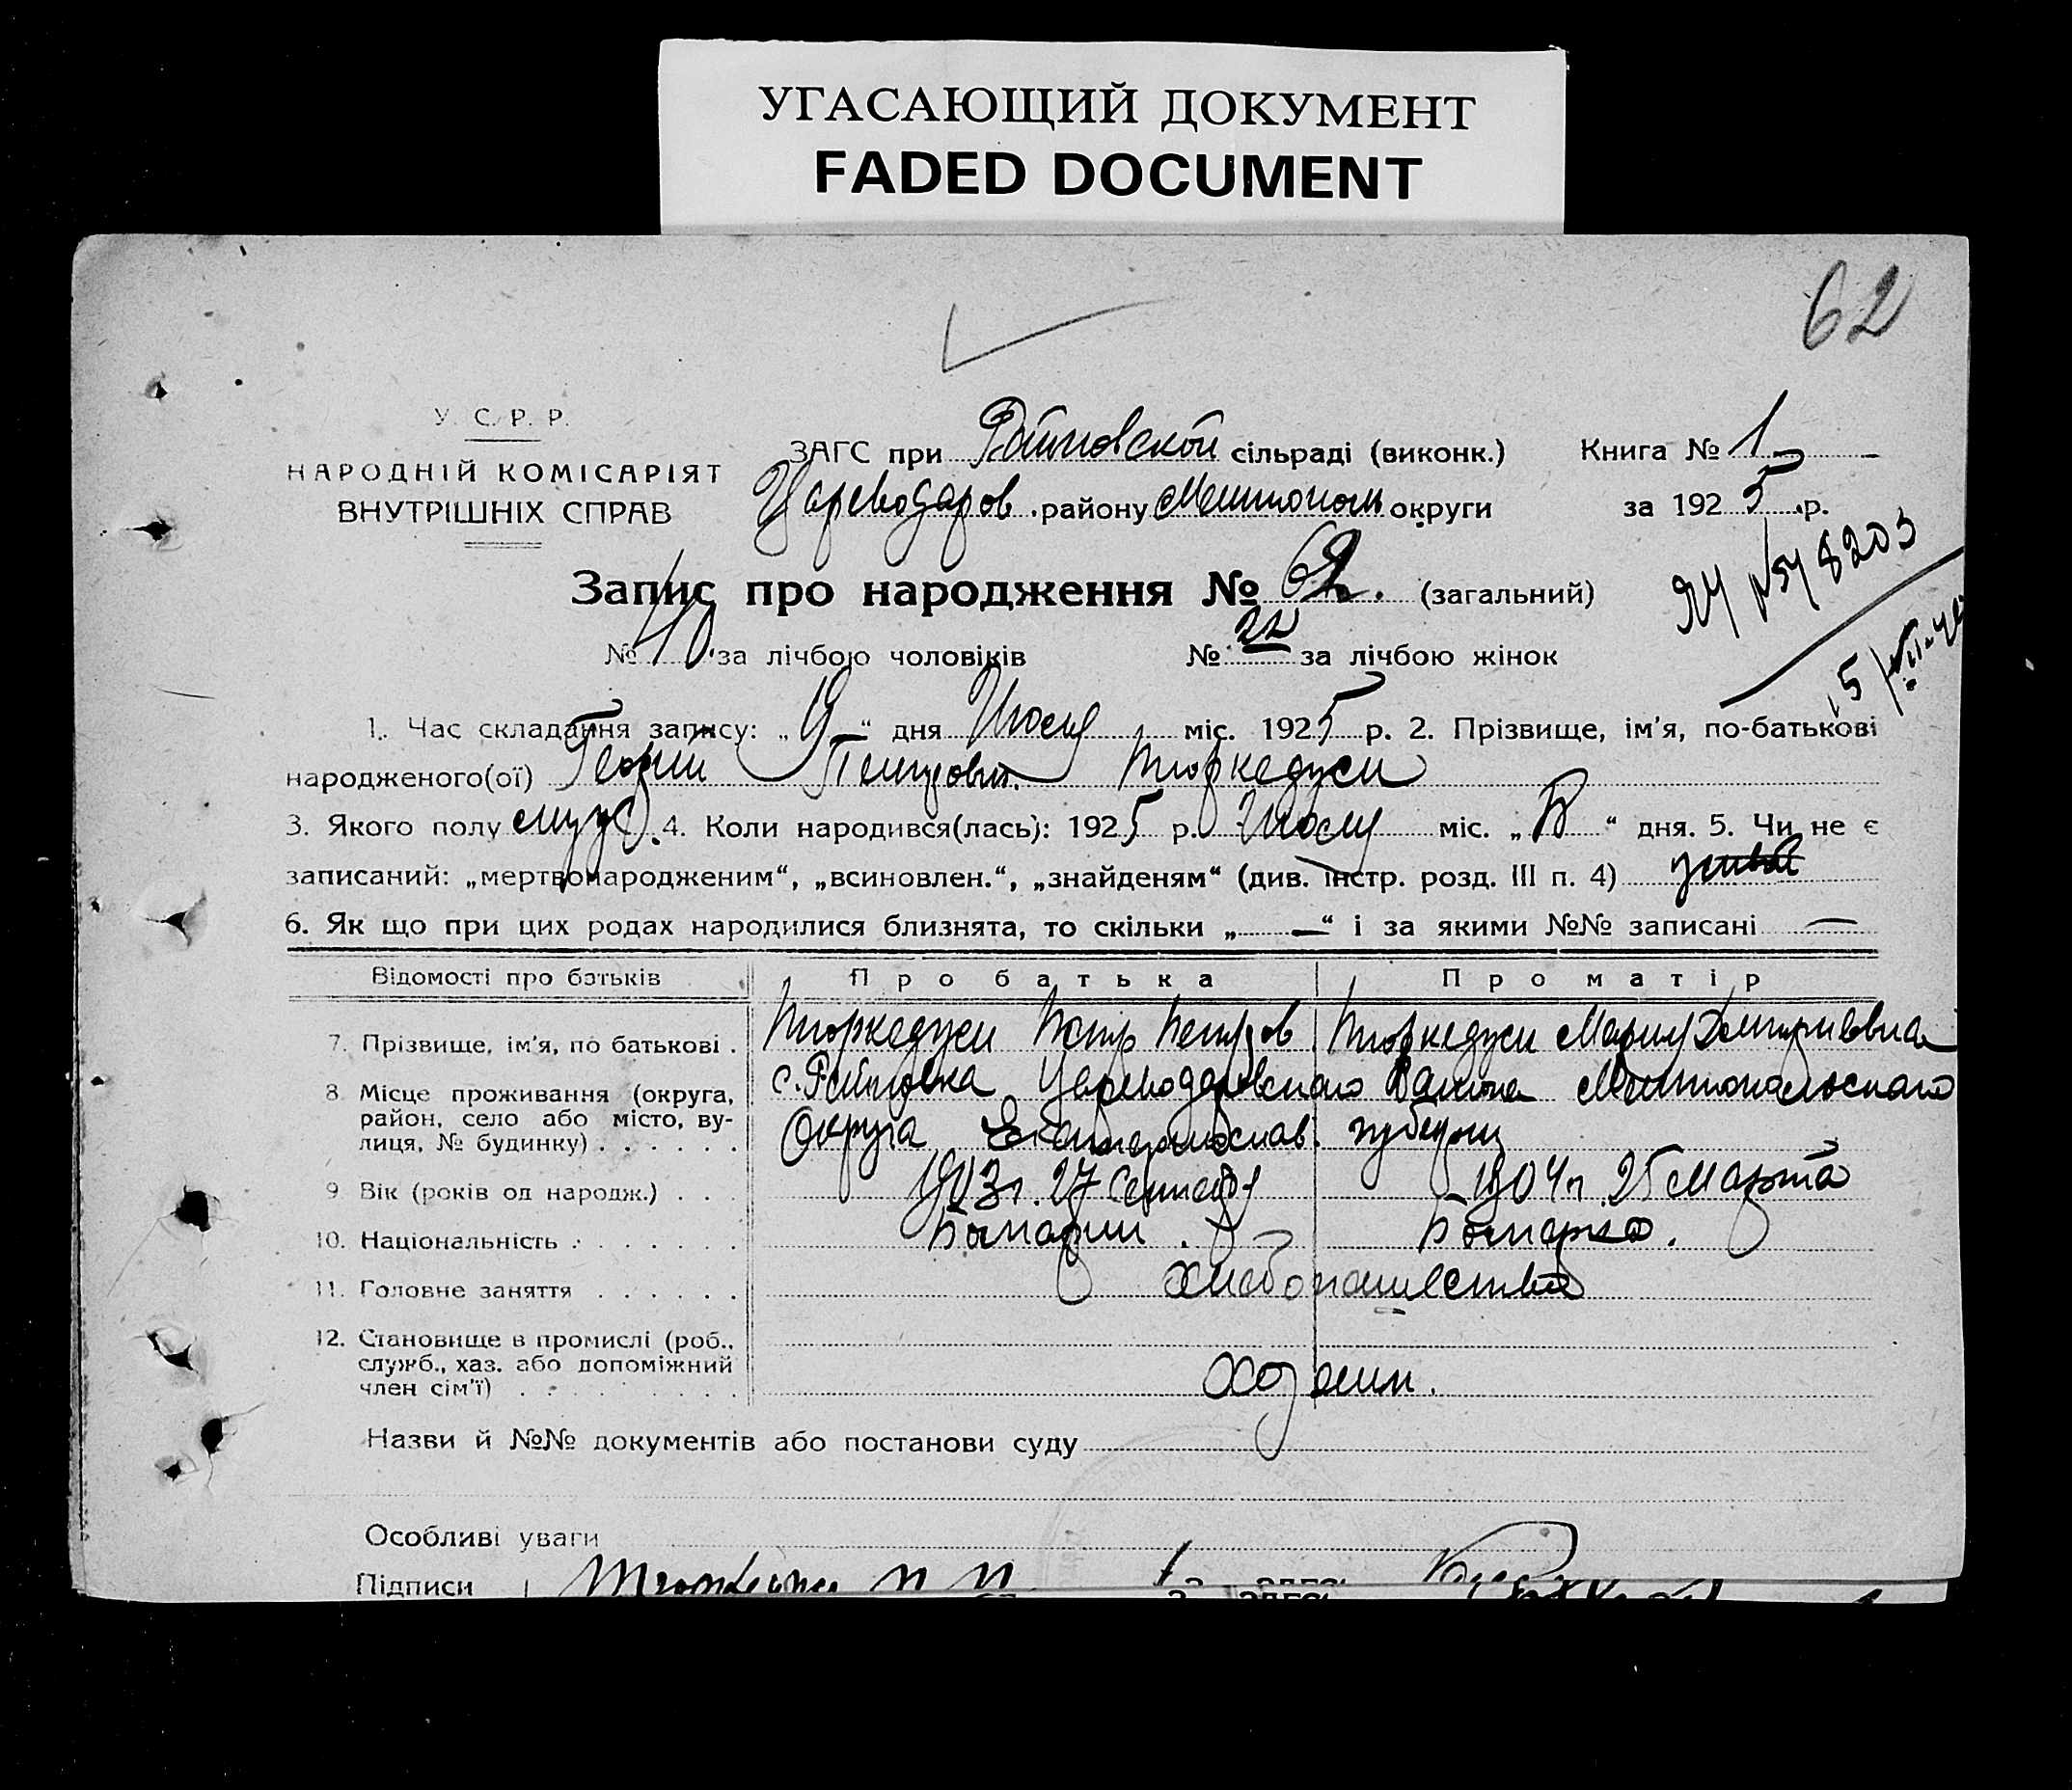 УГАСАЮЩИЙ ДОКУМЕНТ
FADED DOCUMENT
62
У. С. Р. Р.
НАРОДНІЙ КОМІСАРІЯТ
ВНУТРІШНІХ СПРАВ
ЗАГС при сільраді (виконк.)
Книга № 1
Цареводаров. району Мелитополь округи
за 1925 р.
Запис про народження № 62. (загальний)
№ 40 за лічбою чоловіків № 22 за лічбою жінок
1. Час складання запису: „9“ дня Июля міс. 1925 р. 2. Прізвище, ім'я, по-батькові
народженого(ої) Георгий Петрович. Тюркеджи
3. Якого полу муж. 4. Коли народився(лась): 1925 р. Июля міс. „ “ дня. 5. Чи не є
записаний: „мертвонародженим“, „всиновлен.“, „знайденям“ (див. інстр. розд. III п. 4)
6. Як що при цих родах народилися близнята, то скільки „—“ і за якими №№ записані —
Відомості про батьків Про батька Про матір
7. Прізвище, ім'я, по батькові . Тюркеджи Петр Петров Тюркеджи Мария Дмитриевна
8 Місце проживання (округа, район, село або місто, вулиця, № будинку) . . . . . . с. Цареводаровского Района Мелитопольского
Округа Екатеринослав. губернии
9 Вік (років од народж.) . . . 1903 г. 27 Сентября 1904 г. 25 Марта
10. Національність . . . . . . . Болгарин. Болгарка.
11. Головне заняття . . . . . . Хлебопашество
12. Становище в промислі (роб., служб., хаз. або допоміжний член сім'ї) . . . . . . . . . Хозяин.
Назви й №№ документів або постанови суду
Особливі уваги
Підписи